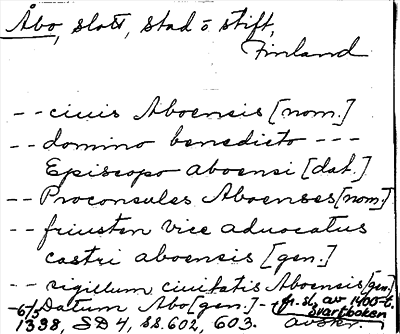 Åbo, slott, stad o stift,
Finland
-- ciuis Aboensis [nom.]
-- domino benedicto ---
Episcopo aboensi [dat.]
-- Proconsules Aboenses [nom.]
-- friusten vice aduocatus
castri aboensis [gen.]
-- sigillum ciuitatis Aboensis [gen.]
-- Datum Abo [gen.] - fr. sl. av 1400-t.
6/5 1338, SD 4, ss. 602, 603. Svartboken
avskr.